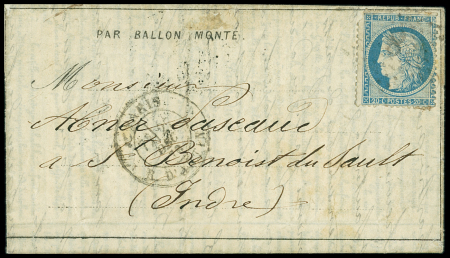 PAR BALLON MONTÉ.
REPUB. FRANC.
20 C. POSTES 20 C.
Monsieur
Abner
a St Benoist du Sault
(Indre)